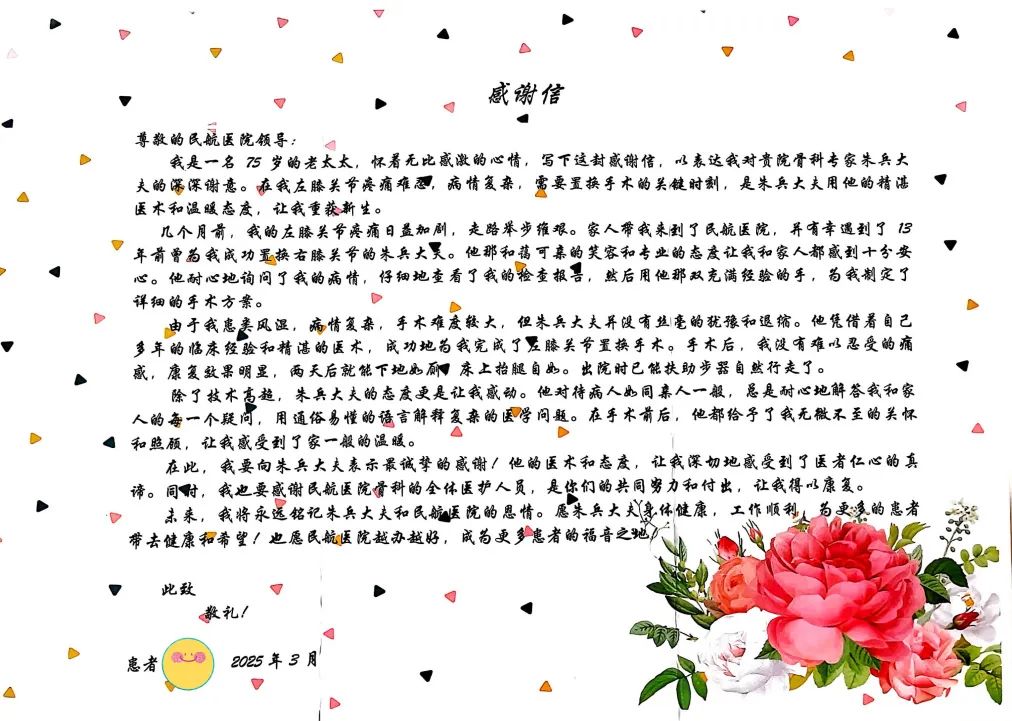 感谢信
尊敬的民航医院领导：
我是一名 75 岁的老太太，怀着无比感激的心情，写下这封感谢信，以表达我对贵院骨科专家朱兵大
夫的深深谢意。在我左膝关节疼痛难忍，病情复杂，需要置换手术的关键时刻，是朱兵大夫用他的精湛
医术和温暖态度，让我重获新生。
几个月前，我的左膝关节疼痛日益加剧，走路举步维艰。家人带我来到了民航医院，并有幸遇到了 13
年前曾为我成功置换右膝关节的朱兵大夫。他那和蔼可亲的笑容和专业的态度让我和家人都感到十分安
心。他耐心地询问了我的病情，仔细地查看了我的检查报告，然后用他那双充满经验的手，为我制定了
详细的手术方案。
由于我患类风湿，病情复杂，手术难度较大，但朱兵大夫并没有丝毫的犹豫和退缩。他凭借着自己
多年的临床经验和精湛的医术，成功地为我完成了左膝关节置换手术。手术后，我没有难以忍受的痛
感，康复效果明显，两天后就能下地如厕，床上抬腿自如。出院时已能扶助步器自然行走了。
除了技术高超，朱兵大夫的态度更是让我感动。他对待病人如同亲人一般，总是耐心地解答我和家
人的每一个疑问，用通俗易懂的语言解释复杂的医学问题。在手术前后，他都给予了我无微不至的关怀
和照顾，让我感受到了家一般的温暖。
在此，我要向朱兵大夫表示最诚挚的感谢！他的医术和态度，让我深切地感受到了医者仁心的真
谛。同时，我也要感谢民航医院骨科的全体医护人员，是你们的共同努力和付出，让我得以康复。
未来，我将永远铭记朱兵大夫和民航医院的恩情。愿朱兵大夫身体健康，工作顺利，为更多的患者
带去健康和希望！也愿民航医院越办越好，成为更多患者的福音之地。
此致
敬礼！
患者 2025 年 3 月